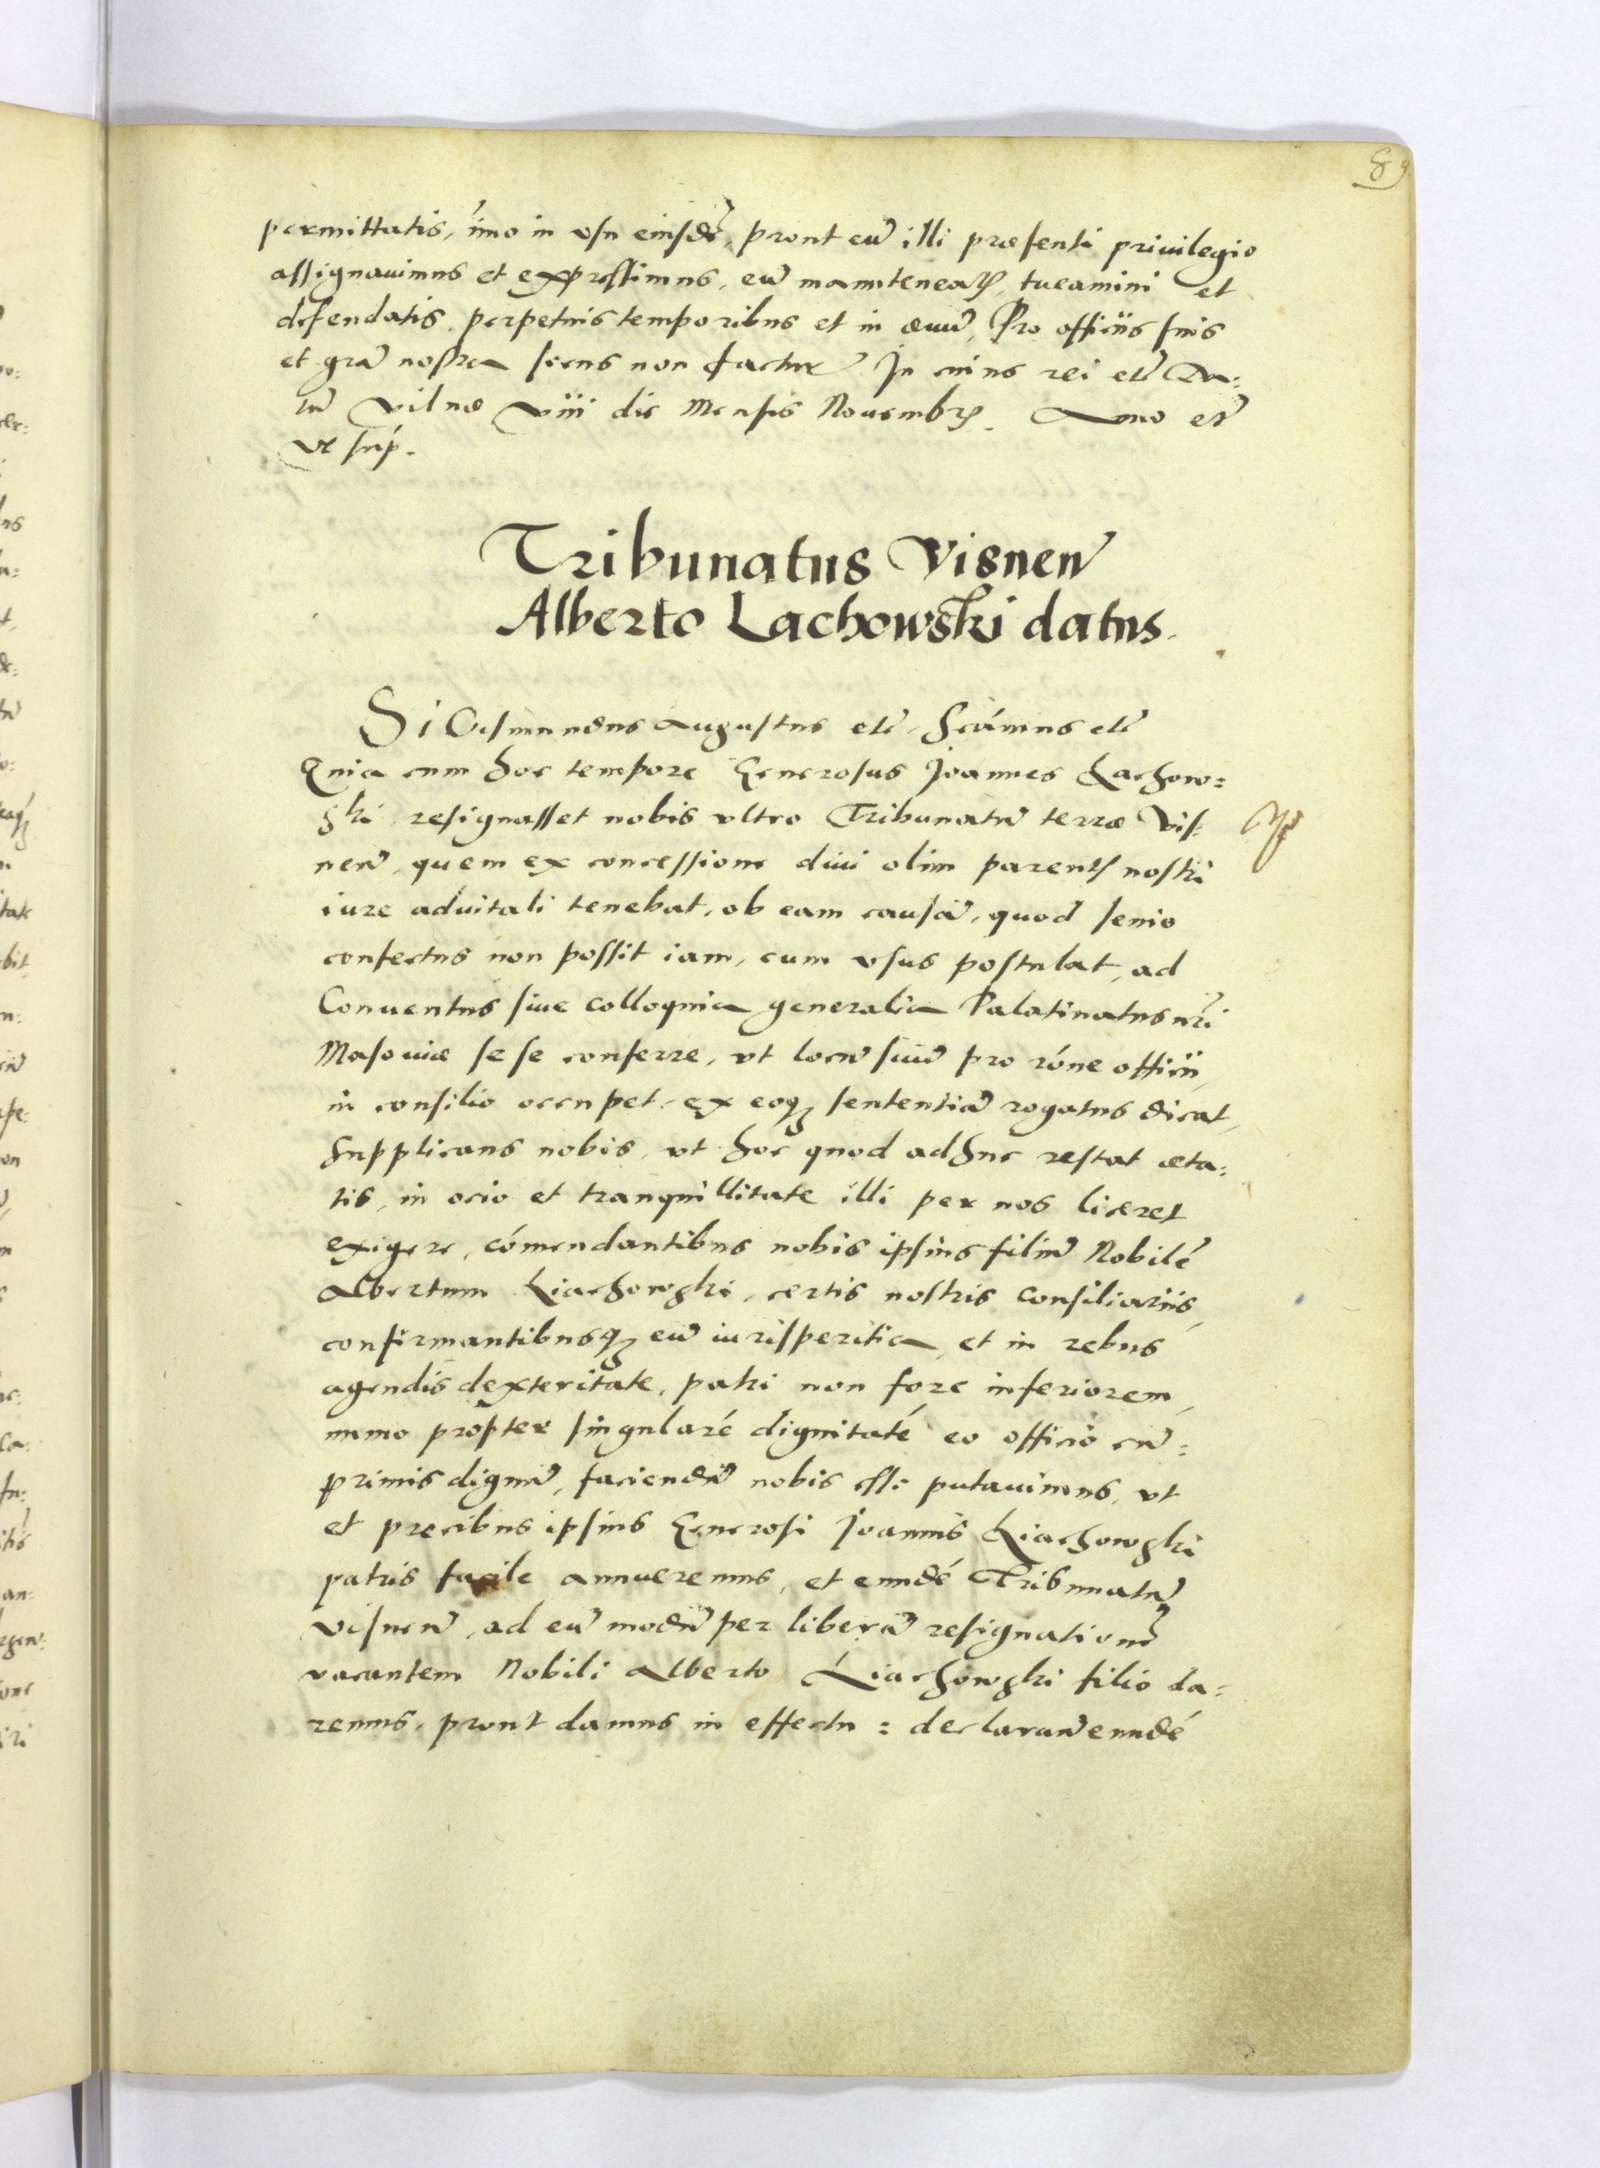 89
permittatis, imo in vsu eiusdē, prout eum̃ illi præsenti privilegio
assignauimus et expressimus, eum̃ manuteneatꝭ, tueamini et
defendatis perpetuis temporibus et in æuum̃, Pro officijs suis
et gra͂ nostra secus non factur̃ In cuius rei etc̃ Da:
tum̃ Vilnæ Viii die Mensis Nouembrꝭ. Anno etc̃
vt sup̃.
Tribunatus Visnen̄
Alberto Lachowski datus.
SiGismundus Augustus etc̃ Scim̃us etc̃
Quia cum hoc tempore Generosus Joannes Lachow=
ski resignasset nobis vltro Tribunatum̃ terræ Vis:
nen̄, quem ex concessione diui olim parentꝭ nostri
iure aduitali tenebat, ob eam causam̃, quod senio
confectus non possit iam, cum vsus postulat, ad
Conuentus siue colloquia generalia Palatinatus nr̃i
Masouiæ se se conferre, vt locum̃ suum̃ pro rōne officij,
in consilio occupet, ex eoqꝫ sententiam̃ rogatus dicat,
supplicans nobis, vt hoc quod adhuc restat æta:
tis, in ocio et tranquillitate illi per nos liceret
exigere, cōmendantibus nobis ipsius filium̃ Nobilē
Albertum Liachowski, certis nostris Consiliarijs,
confirmantibusqꝫ eum̃ iurisperitia, et in rebus
agendis dexteritate, patri non fore inferiorem,
immo propter singularē dignitatē eo officio cum̃:
primis dignum̃, faciendum̃ nobis esse putauimus, vt
et precibus ipsius Generosi Joannis Liachowski
patris facile annueremus, et eundē Tribunatum̃
Visnen̄, ad eum̃ modum̃ per liberam̃ resignationē
vacantem Nobili Alberto Liachowski filio da:
remus, prout damus in effectu: declaran̄ eundē